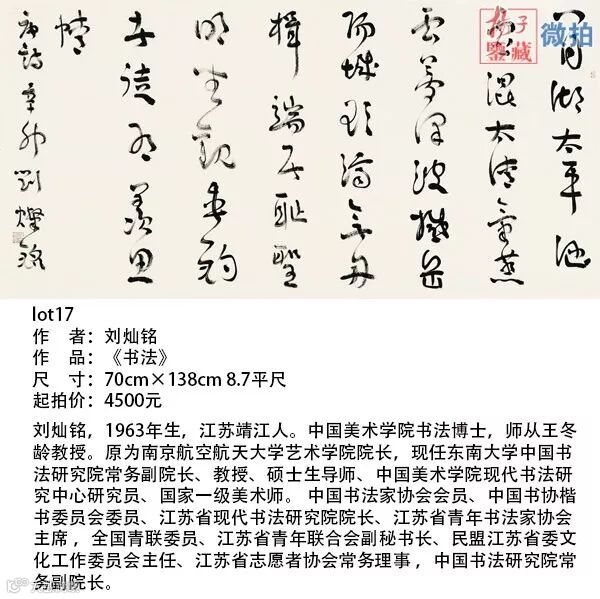 八月湖水平涵
混太清气蒸
云梦泽波撼岳
阳城欲济无舟
楫端居耻圣
明坐观垂钓
者徒有羡鱼
情
唐诗辛卯劉燦銘
子
鉴藏
微拍
lot17
作 者：刘灿铭
作 品：《书法》
尺 寸：70cm×138cm 8.7平尺
起拍价：4500元
刘灿铭，1963年生，江苏靖江人。中国美术学院书法博士，师从王冬
龄教授。原为南京航空航天大学艺术学院院长，现任东南大学中国书
法研究院常务副院长、教授、硕士生导师、中国美术学院现代书法研
究中心研究员、国家一级美术师。 中国书法家协会会员、中国书协楷
书委员会委员、江苏省现代书法研究院院长、江苏省青年书法家协会
主席，全国青联委员、江苏省青年联合会副秘书长、民盟江苏省委文
化工作委员会主任、江苏省志愿者协会常务理事，中国书法研究院常
务副院长。